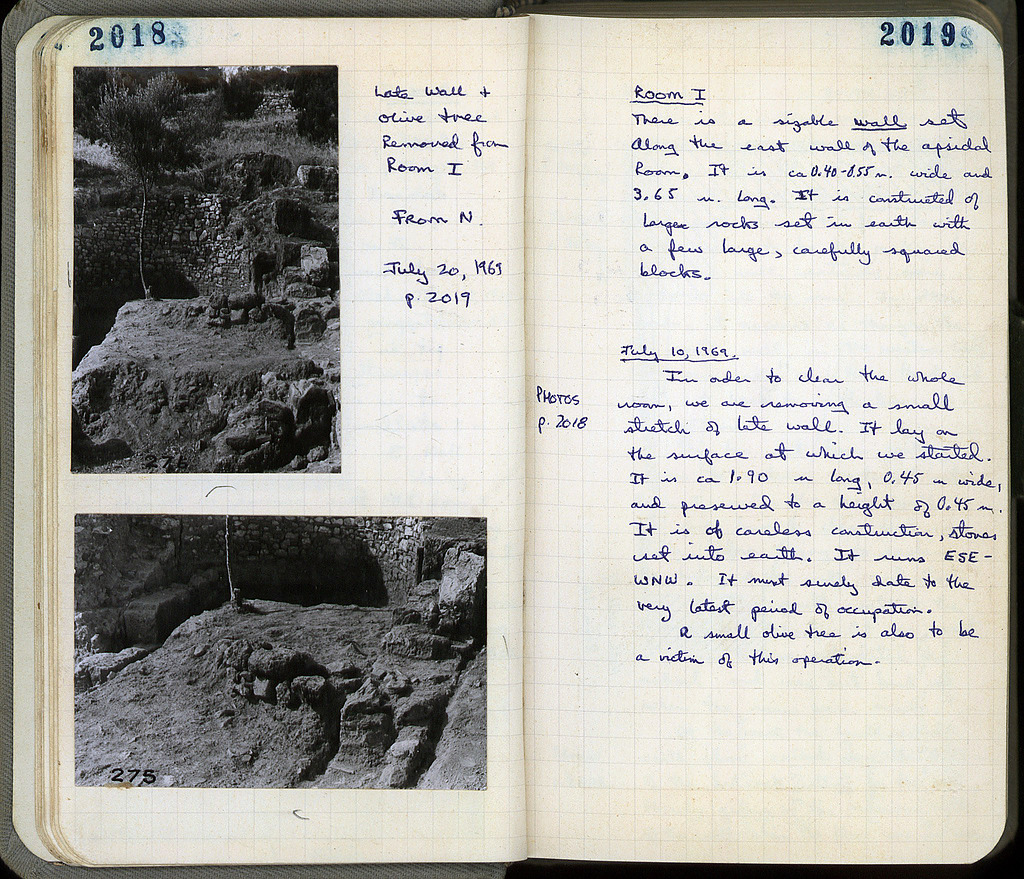 2018 S
Late Wall +
olive tree
Removed from
Room I
From N.
July 20, 1969
p. 2019
275
2019 S
Room I
There is a sizable wall set
along the east wall of the apsidal
Room. It is ca 0.40-0.55 m. wide and
3.65 m. long. It is constructed of
large rocks set in earth with
a few large, carefully squared
blocks.
July 10, 1969.
In order to clear the whole
room, we are removing a small
stretch of late wall. It lay on
the surface at which we started.
It is ca 1.90 m long, 0.45 m wide,
and preserved to a height of 0.45 m.
It is of careless construction, stones
set into earth. It runs ESE-
WNW. It must surely date to the
very latest period of occupation.
A small olive tree is also to be
a victim of this operation.
PHOTOS
p. 2018